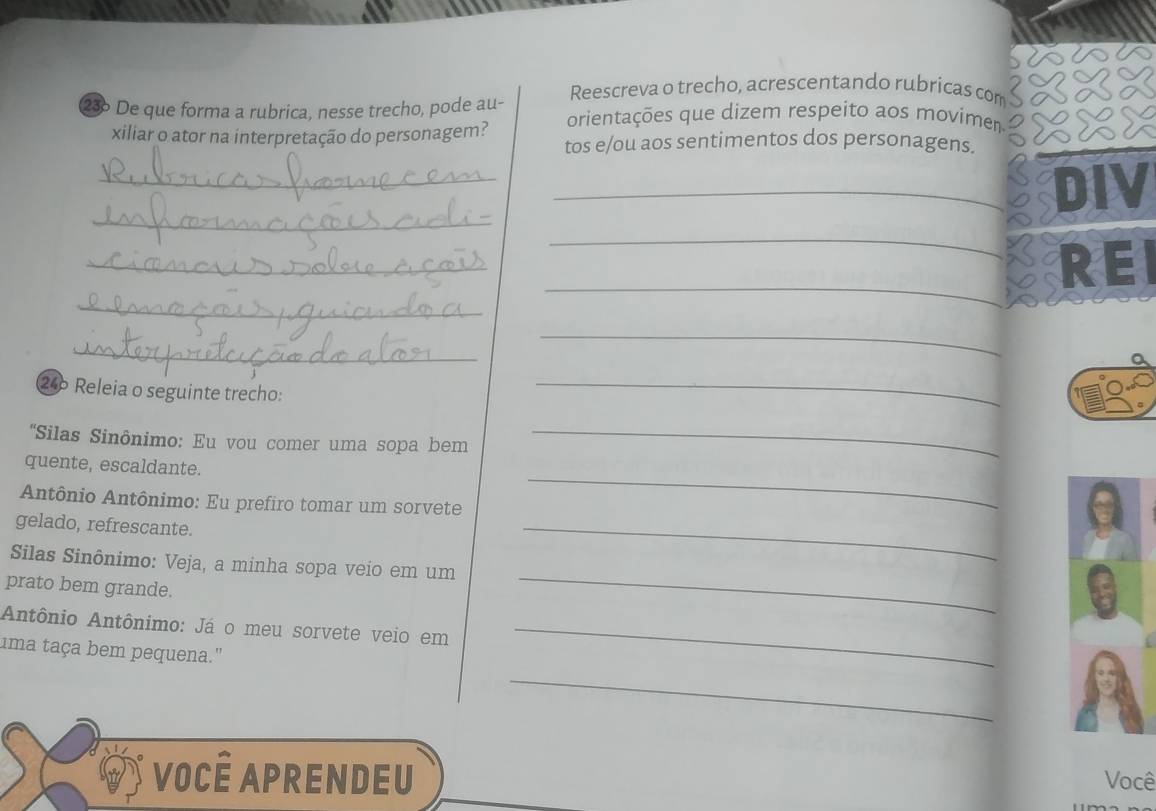 23 De que forma a rubrica, nesse trecho, pode au-
xiliar o ator na interpretação do personagem?
Rubricas fornecem
informações adi-
cionais sobre açõis
e emoções, guiando a
interpretação do ator
24 Releia o seguinte trecho:
"Silas Sinônimo: Eu vou comer uma sopa bem
quente, escaldante.
Antônio Antônimo: Eu prefiro tomar um sorvete
gelado, refrescante.
Silas Sinônimo: Veja, a minha sopa veio em um
prato bem grande.
Antônio Antônimo: Já o meu sorvete veio em
uma taça bem pequena."
Reescreva o trecho, acrescentando rubricas com
orientações que dizem respeito aos movimen-
tos e/ou aos sentimentos dos personagens.
VOCÊ APRENDEU
DIV
RE
Você